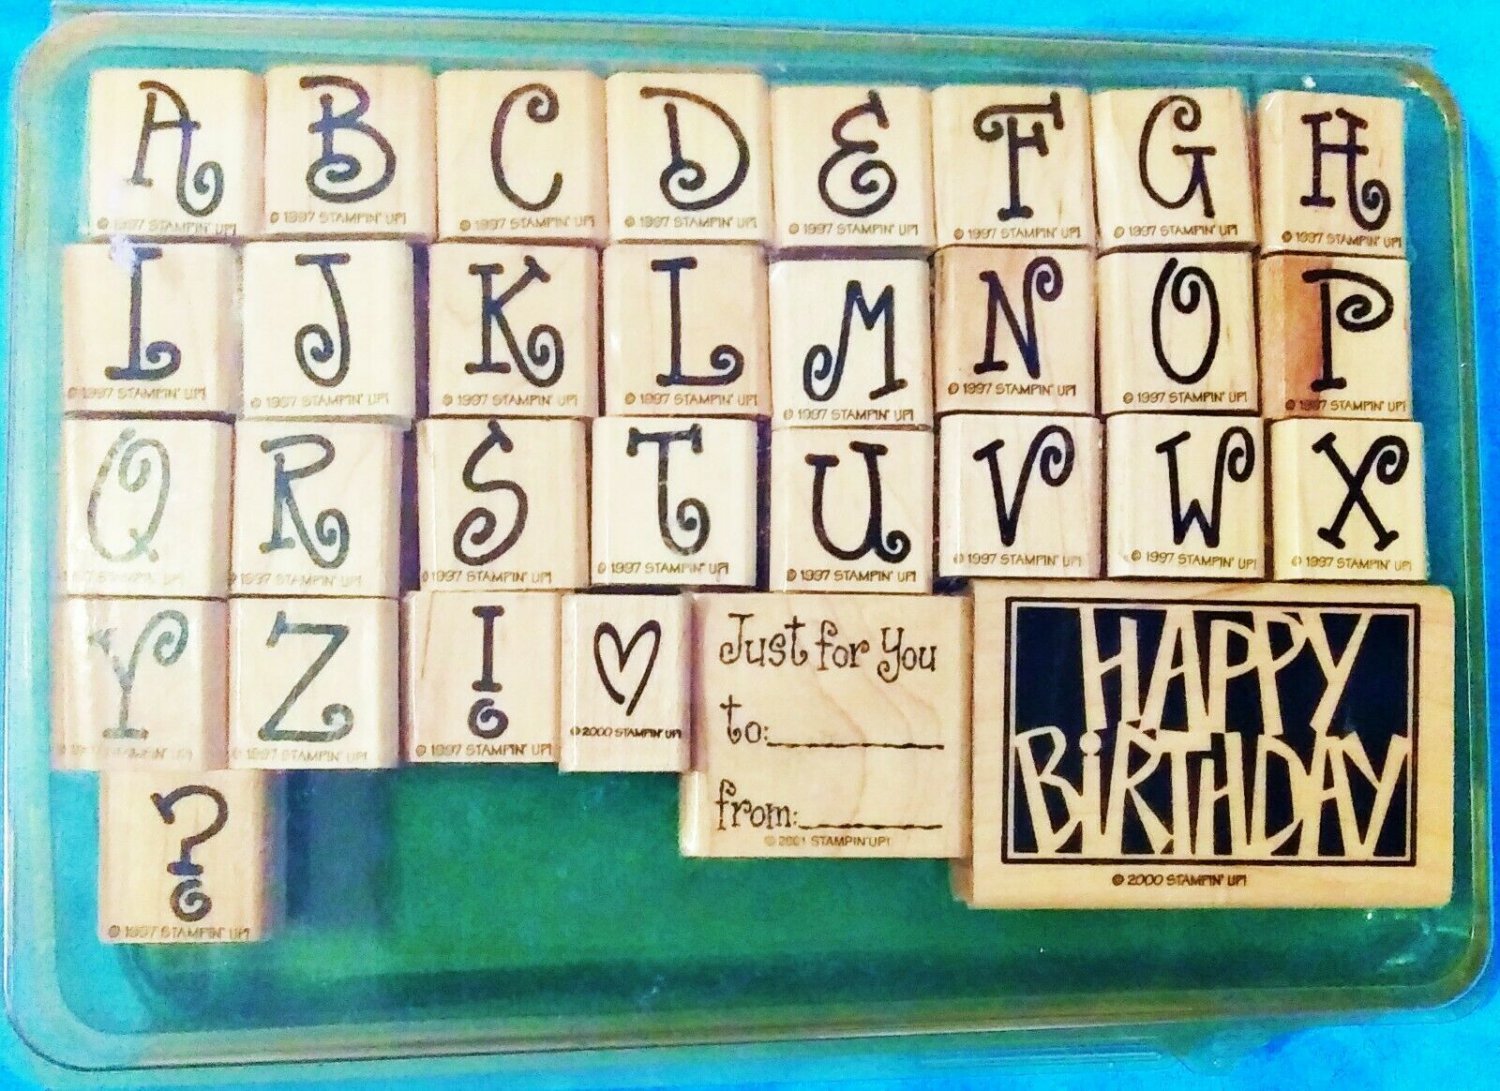 A B C D E F G H
© 1997 STAMPIN' UP! © 1997 STAMPIN' UP! © 1997 STAMPIN' UP! © 1997 STAMPIN' UP! © 1997 STAMPIN' UP! © 1997 STAMPIN' UP! © 1997 STAMPIN' UP! © 1997 STAMPIN' UP!
I J K L M N O P
© 1997 STAMPIN' UP! © 1997 STAMPIN' UP! © 1997 STAMPIN' UP! © 1997 STAMPIN' UP! © 1997 STAMPIN' UP! © 1997 STAMPIN' UP! © 1997 STAMPIN' UP! © 1997 STAMPIN' UP!
Q R S T U V W X
1997 STAMPIN' UP! © 1997 STAMPIN' UP! © 1997 STAMPIN' UP! © 1997 STAMPIN' UP! © 1997 STAMPIN' UP! © 1997 STAMPIN' UP! © 1997 STAMPIN' UP! © 1997 STAMPIN' UP!
Y Z ! ♡
© 1997 STAMPIN' UP! © 1997 STAMPIN' UP! © 1997 STAMPIN' UP! © 2000 STAMPIN' UP!
?
© 1997 STAMPIN' UP!
Just for You
to:__________
from:__________
© 2001 STAMPIN' UP!
HAPPY
BiRTHDAY
© 2000 STAMPIN' UP!